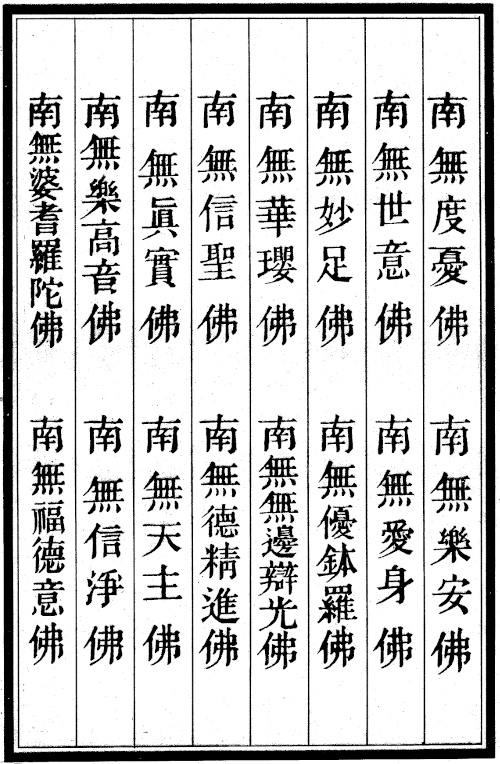 南無度憂佛　南無樂安佛
南無世意佛　南無愛身佛
南無妙足佛　南無優鉢羅佛
南無華瓔佛　南無無邊辯光佛
南無信聖佛　南無德精進佛
南無眞實佛　南無天主佛
南無樂高音佛　南無信淨佛
南無婆耆羅陀佛　南無福德意佛